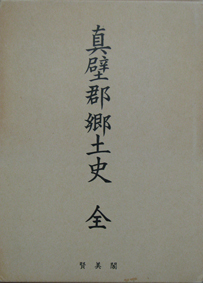 真壁郡郷土史 全
賢美閣